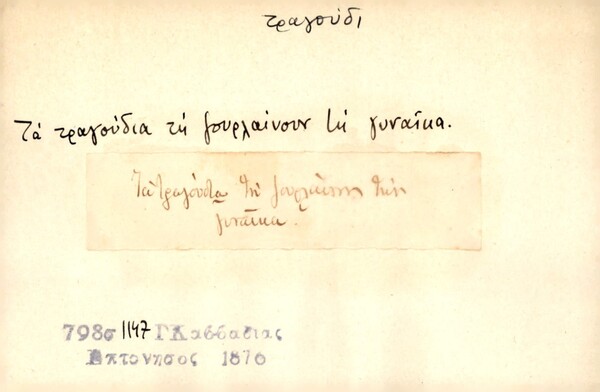 τραγούδι
Τά τραγούδια τή ζουρλαίνουν τή γυναῖκα.
Τα τραγούδια τή ζουρλαίνουν τήν
γυναῖκα.
798σ 1147 Γ Καββαδίας
Επτονησος 1876